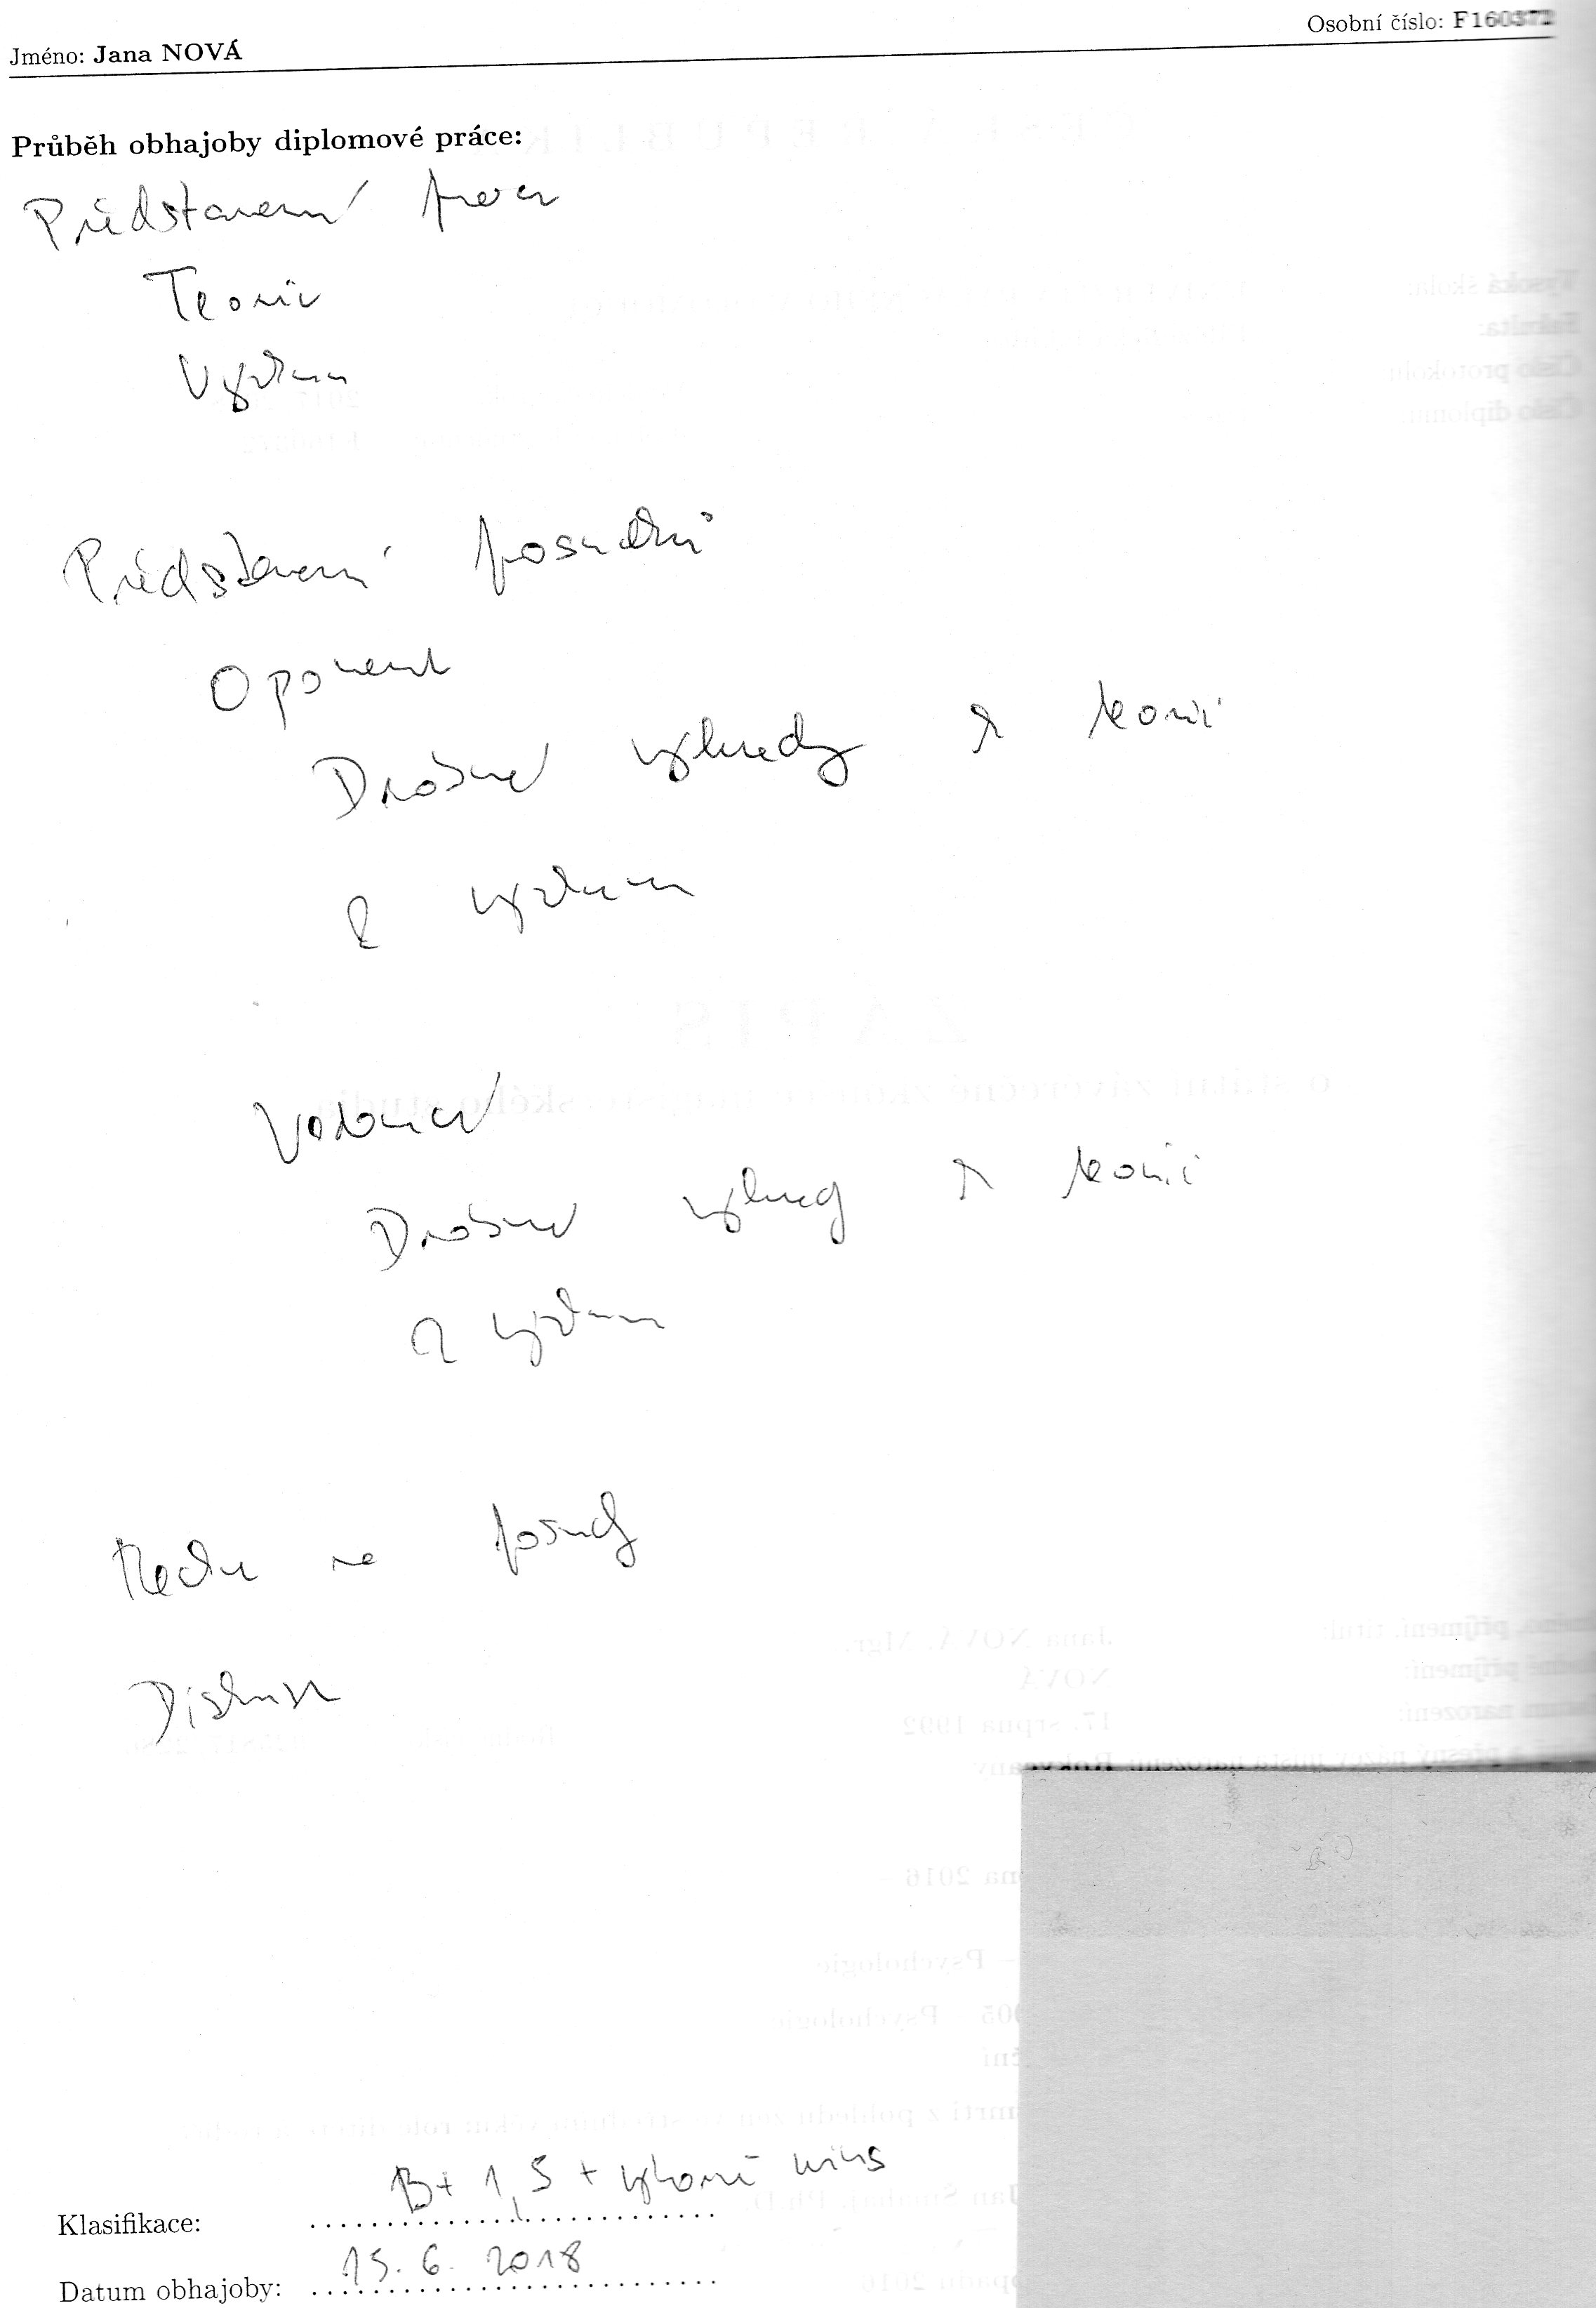 Osobní číslo: F160372
Jméno: Jana NOVÁ
Průběh obhajoby diplomové práce:
Představení práce
Teorie
Výzkum
Představení posudků
Oponent
Drobné výhrady k teorii
k výzkumu
Vedoucí
Drobné výhrady k teorii
k výzkumu
na posudky
Diskuse
B+ 1,5 + výborně minus
Klasifikace:
15. 6. 2018
Datum obhajoby: